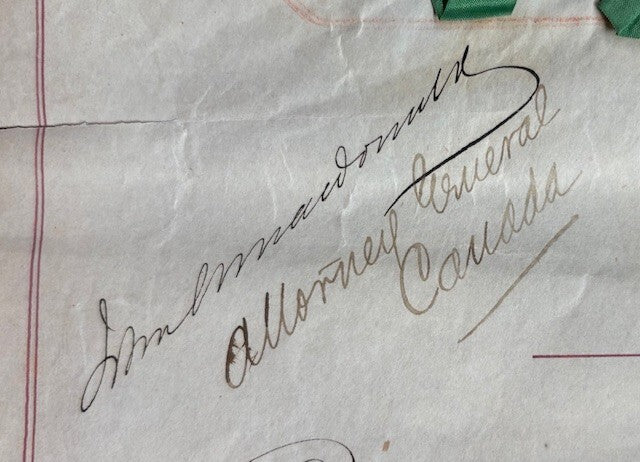 John A Macdonald
Attorney General
Canada